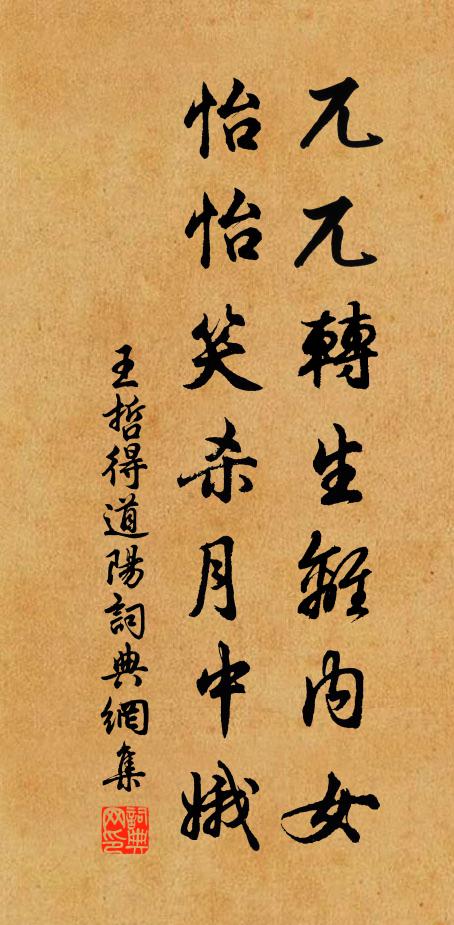 兀兀轉生離內女
怡怡笑杀月中娥
王哲得道陽詞典網集
詞典网印